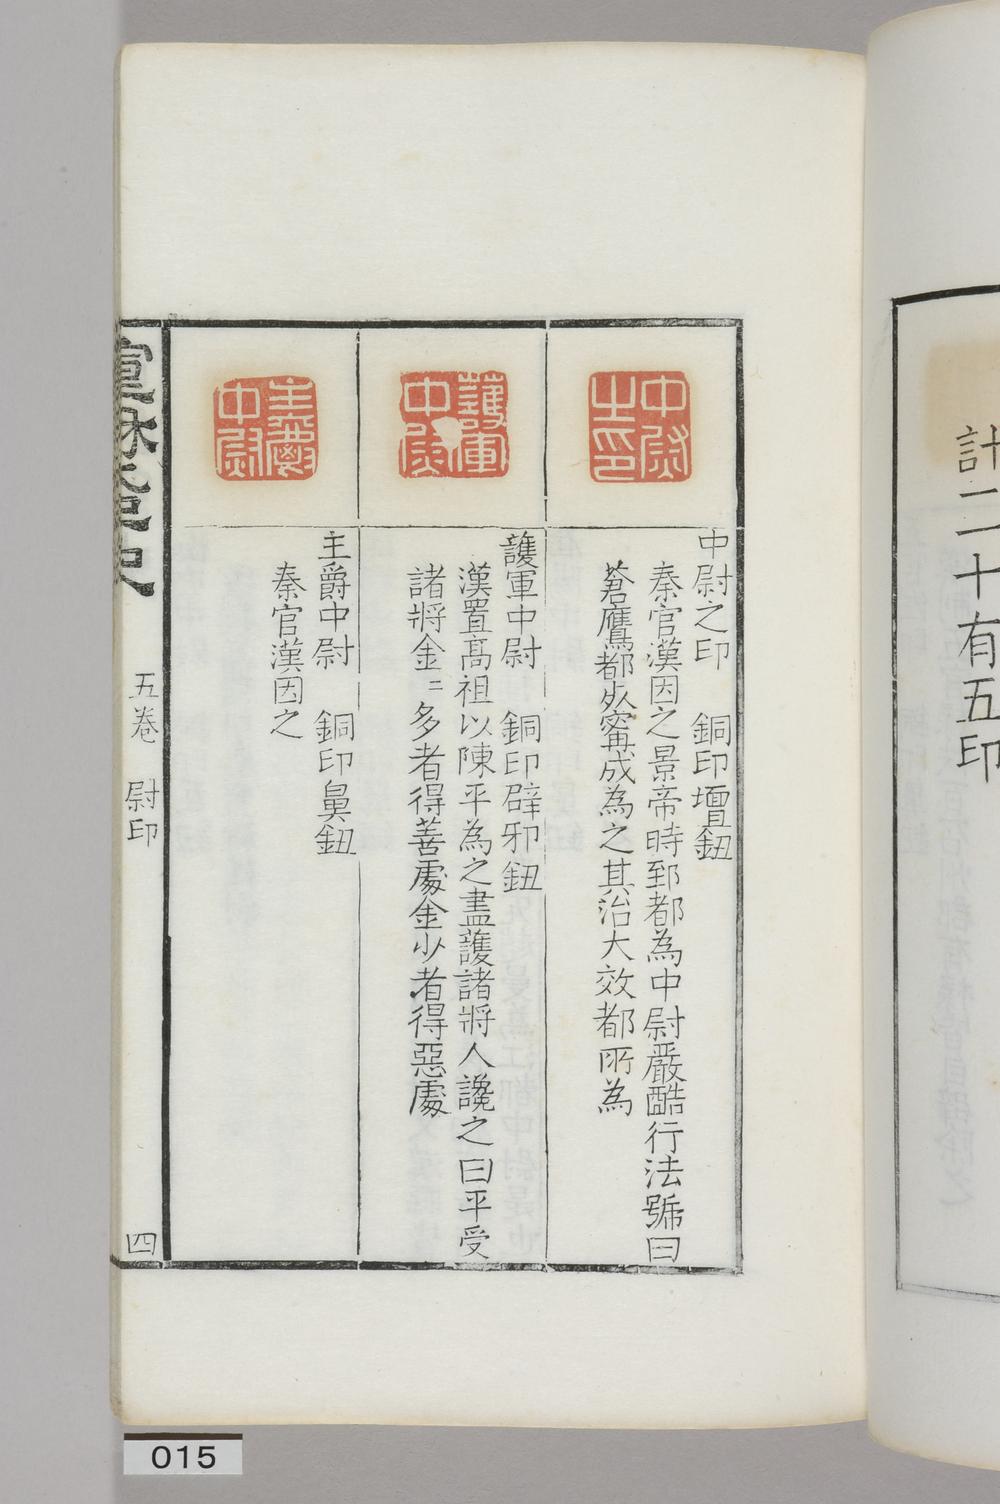 計二十有五印
中尉之印
護軍中尉
主爵中尉
中尉之印　銅印壇鈕
秦官漢因之景帝時郅都為中尉嚴酷行法號曰
蒼鷹都死甯成為之其治大效都所為
護軍中尉　銅印辟邪鈕
漢置高祖以陳平為之盡護諸將人讒之曰平受
諸將金〻多者得善處金少者得惡處
主爵中尉　銅印鼻鈕
秦官漢因之
宣和印史
五卷　尉印
四
015